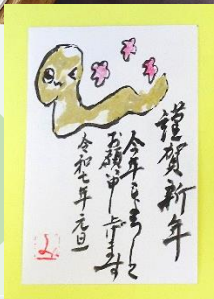 謹賀新年
今年もよろしく
お願い申し上げます
令和七年 元旦